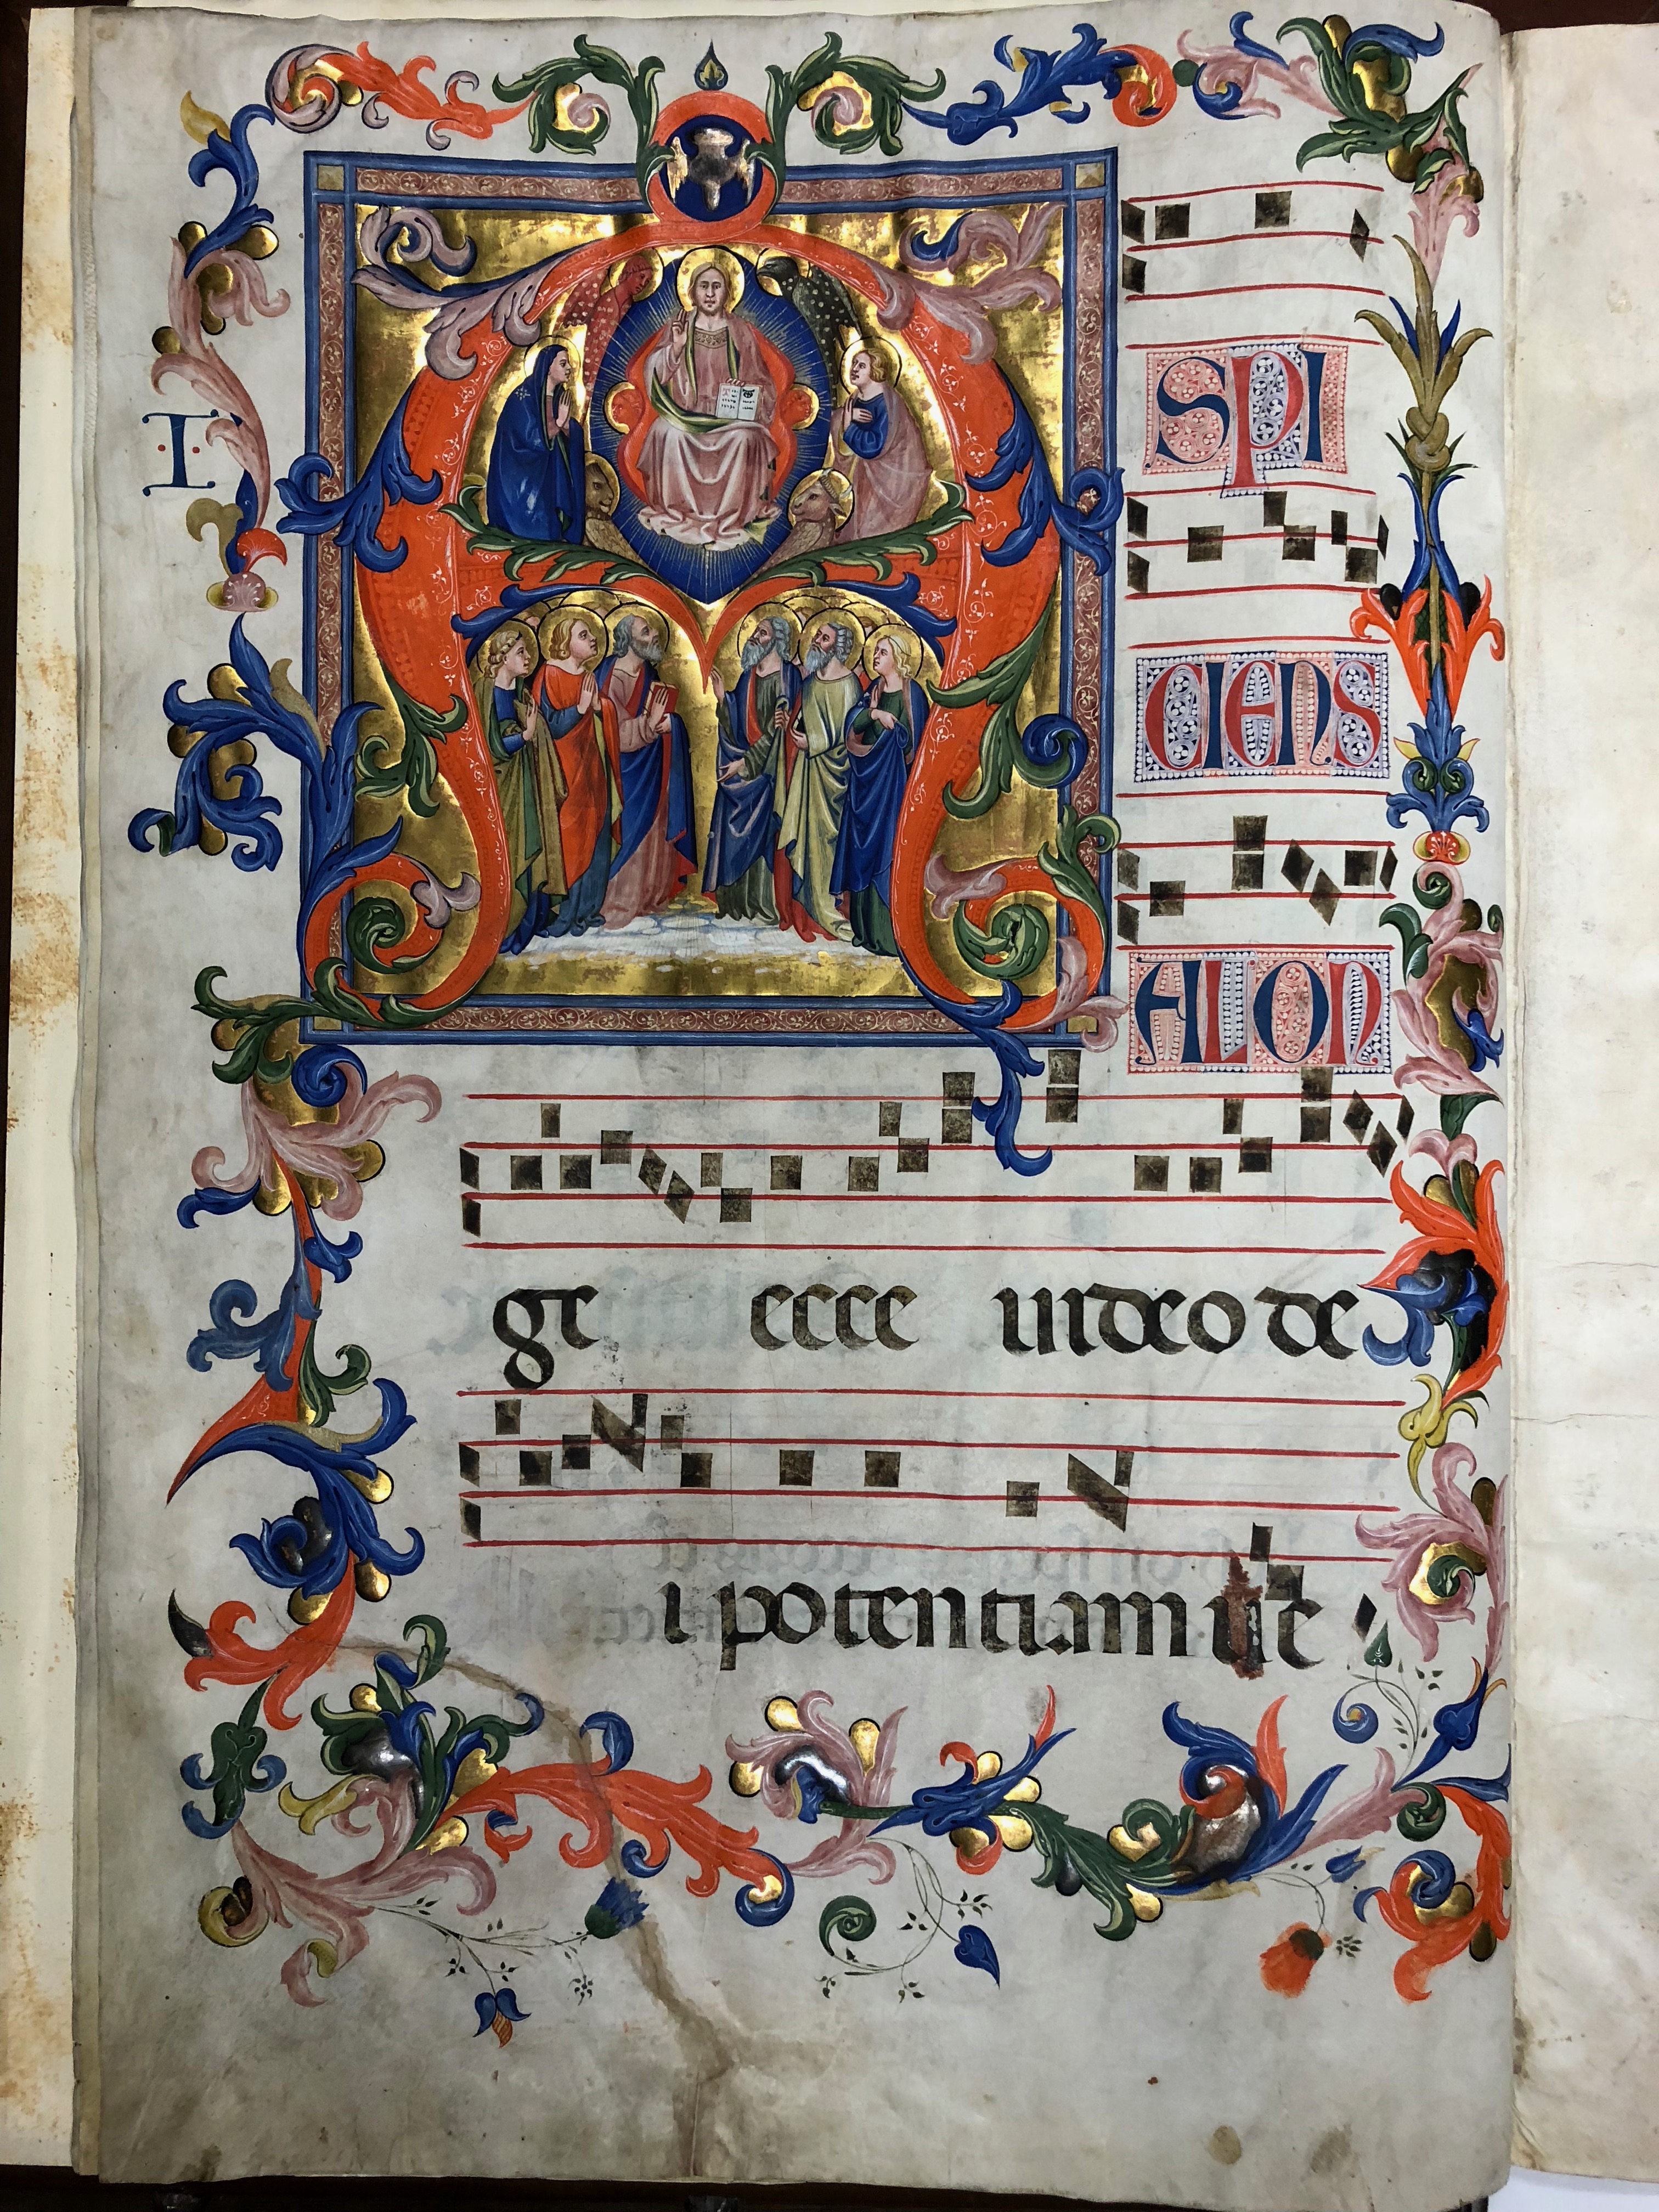 ·I·
A SPI
CIENS
A LON
ge ecce uideo de
i potentiam ue